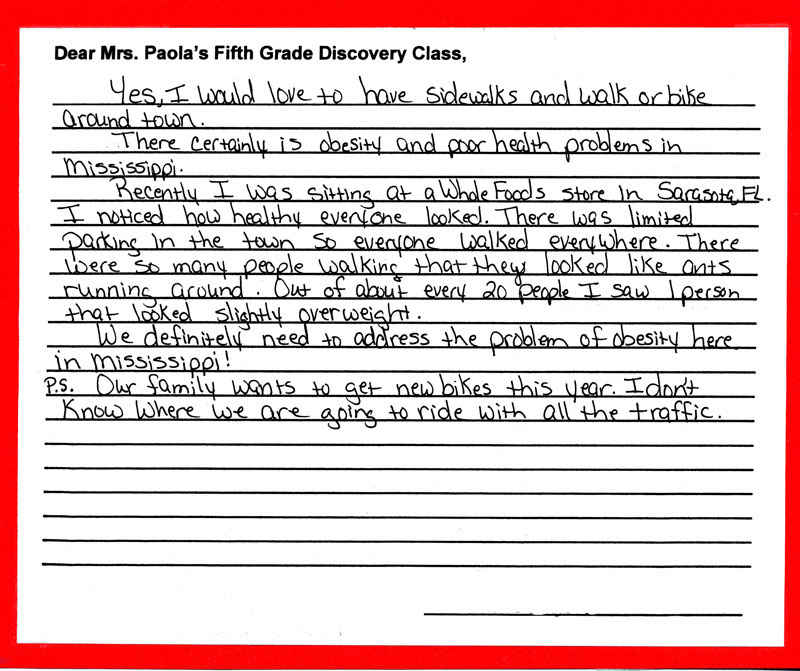 Dear Mrs. Paola's Fifth Grade Discovery Class,
Yes, I would love to have sidewalks and walk or bike
around town.
There certainly is obesity and poor health problems in
Mississippi.
Recently I was sitting at a Whole Foods store in Sarasota, FL.
I noticed how healthy everyone looked. There was limited
parking in the town so everyone walked everywhere. There
were so many people walking that they looked like ants
running around. Out of about every 20 people I saw 1 person
that looked slightly overweight.
We definitely need to address the problem of obesity here
in Mississippi!
P.S. Our family wants to get new bikes this year. I don't
know where we are going to ride with all the traffic.